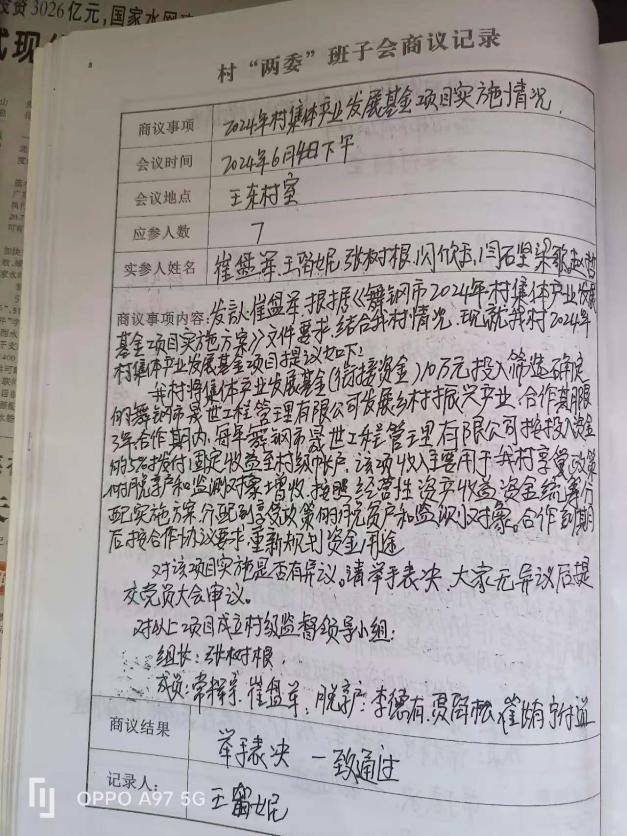 投资3026亿元,国家水网
村“两委”班子会商议记录
商议事项 2024年村集体产业发展基金项目实施情况
会议时间 2024年6月4日下午
会议地点 王东村室
应参人数 7
实参人姓名 崔盘军 王留妮 张树根 闫欣
商议事项内容:发言:崔盘军,根据《舞钢市2024年村集体产业发展
基金项目实施方案》文件要求,结合我村情况,现就我村2024年
村集体产业发展基金项目提议如下:
我村将集体产业发展基金(衔接资金)10万元,投入筛选确定
的舞钢市晟世工程管理有限公司发展乡村振兴产业,合作期限
3年合作期内,每年舞钢市晟世工程管理有限公司按投入资金
的5%拨付固定收益至村级帐户,该项收入主要用于我村享受政策
的脱贫户和监测对象增收,按照经营性资产收益资金统筹分
配实施方案,分配到享受政策的脱贫户和监测对象。合作到期
后按合作协议要求重新规划资金用途
对该项目实施是否有异议。请举手表决,大家无异议后提
交党员大会审议。
对以上项目成立村级监督领导小组:
组长:张树根,
成员:崔盘军,脱贫户:李德有,
商议结果 举手表决 一致通过
记录人: 王留妮
OPPO A97 5G